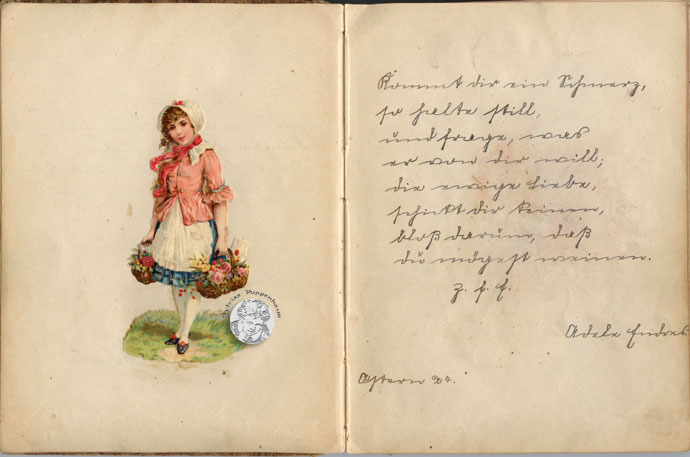 Kommt dir ein Schmerz,
so halte still,
und frage, was
er von dir will;
die ewige Liebe,
schickt dir keinen,
bloß darum, daß
du mögest weinen.
z. f. E.
Adele Endres
Ostern 24.
Puppenhaus